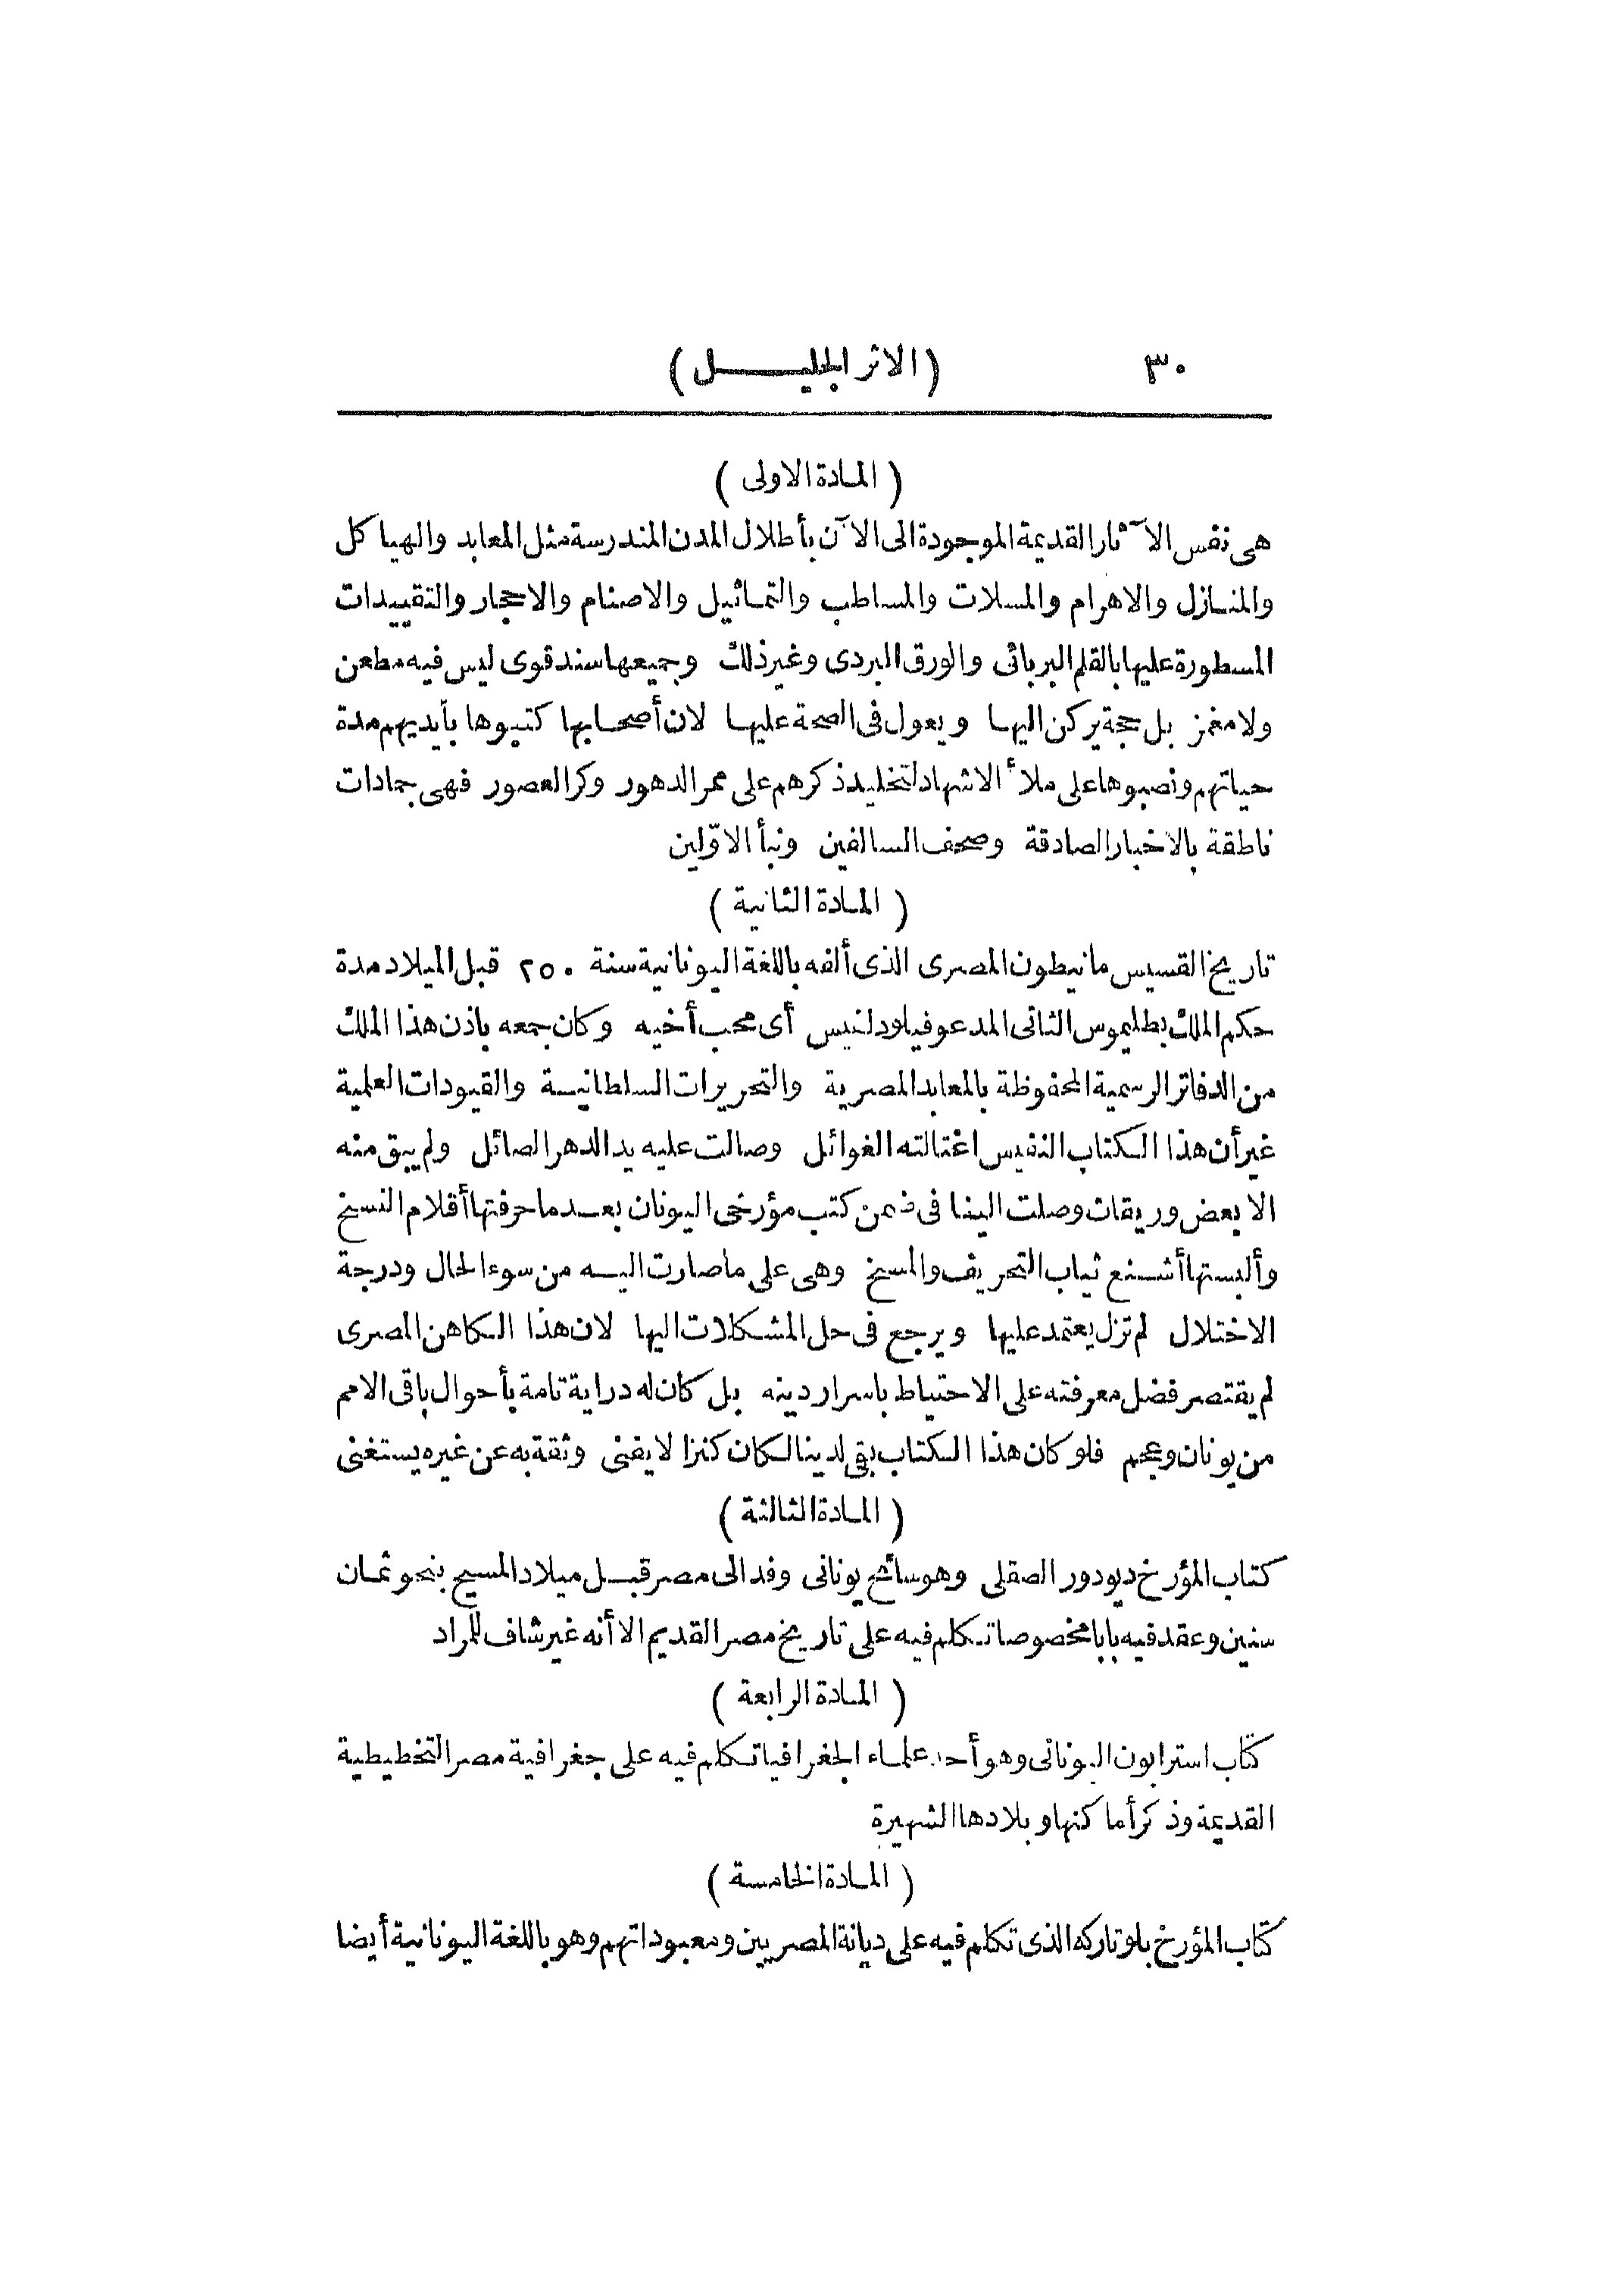 ٣٠ (الاثر الجليل)
(المادة الاولى)
هى نفس الآثار القديمة الموجودة الى الآن بأطلال المدن المندرسة مثل المعابد والهياكل
والمنازل والاهرام والمسلات والمساطب والتماثيل والاصنام والاحجار والتقييدات
المسطورة عليها بالقلم البربائى والورق البردى وغير ذلك وجميعها سند قوى ليس فيه مطعن
ولا مغمز بل حجة يركن اليها ويعول فى الصحة عليها لان أصحابها كتبوها بأيديهم مدة
حياتهم ونصبوها على ملأ الاشهاد لتخليد ذكرهم على ممر الدهور وكر العصور فهى جمادات
ناطقة بالاخبار الصادقة وصحف السالفين ونبأ الاوّلين
(المادة الثانية)
تاريخ القسيس مانيطون المصرى الذى ألفه باللغة اليونانية سنة ٢٥٠ قبل الميلاد مدة
حكم الملك بطليموس الثانى المدعو فيلودلفيس أى محب أخيه وكان جمعه باذن هذا الملك
من الدفاتر الرسمية المحفوظة بالمعابد المصرية والتحريرات السلطانية والقيودات العلمية
غير أن هذا الكتاب النفيس اغتالته الغوائل وصالت عليه يد الدهر الصائل ولم يبق منه
الا بعض وريقات وصلت الينا فى ضمن كتب مؤرخى اليونان بعد ما حرفتها أقلام النسخ
وألبستها أشنع ثياب التحريف والمسخ وهى على ما صارت اليه من سوء الحال ودرجة
الاختلال لم تزل يعتمد عليها ويرجع فى حل المشكلات اليها لان هذا الكاهن المصرى
لم يقتصر فضل معرفته على الاحتياط باسرار دينه بل كان له دراية تامة بأحوال باقى الامم
من يونان وعجم فلو كان هذا الكتاب بقى لدينا لكان كنزا لا يفنى وثقة به عن غيره يستغنى
(المادة الثالثة)
كتاب المؤرخ ديودور الصقلى وهو سائح يونانى وفد الى مصر قبل ميلاد المسيح بنحو ثمان
سنين وعقد فيه بابا مخصوصا تكلم فيه على تاريخ مصر القديم الا أنه غير شاف للمراد
(المادة الرابعة)
كتاب استرابون اليونانى وهو أحد علماء الجغرافيا تكلم فيه على جغرافية مصر التخطيطية
القديمة وذكر أماكنها وبلادها الشهيرة
(المادة الخامسة)
كتاب المؤرخ بلوتاركه الذى تكلم فيه على ديانة المصريين ومعبوداتهم وهو باللغة اليونانية أيضا